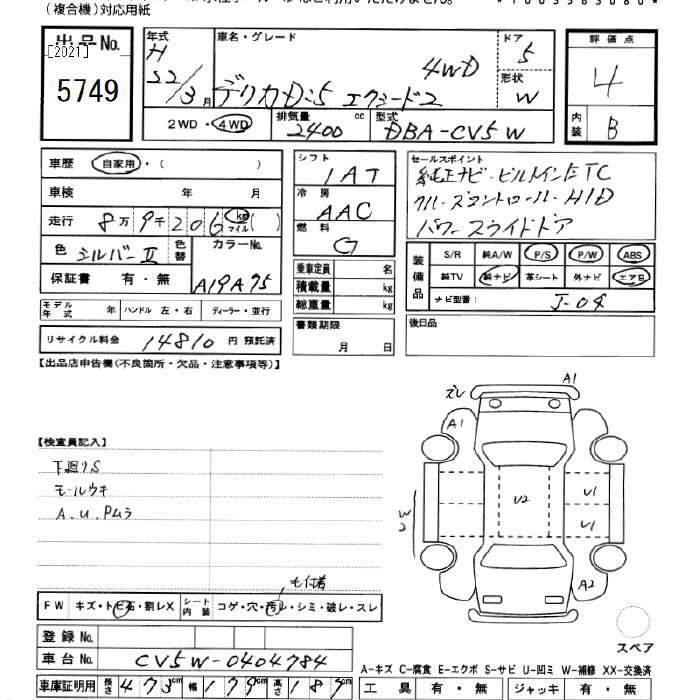 (複合機)対応用紙
出品No.
[2021]
5749
年式
H
22/3月
車名・グレード
デリカD:5 エクシード2
4WD
ドア
5
形状
W
2WD・4WD
排気量
2400 cc
型式
DBA-CV5W
評価点
4
内装
B
車歴 自家用・( )
車検 年 月
走行 8万9千206 km マイル( )
色 シルバーII
色替
カラーNo.
A19A75
保証書 有・無
モデル年式 年 ハンドル 左・右 ディーラー・並行
リサイクル料金 14810 円 預託済
シフト
IAT
冷房
AAC
燃料
G
乗車定員 名
積載量 kg
総重量 kg
書類期限
月 日
セールスポイント
純正ナビ・ビルトインETC
クルーズコントロール・HID
パワースライドドア
装備品
S/R 純A/W P/S P/W ABS
純TV 純ナビ 革シート 外ナビ エアB
ナビ型番: J-04
後日品
【出品店申告欄(不良箇所・欠品・注意事項等)】
【検査員記入】
下廻りS
モールウキ
A.U.Pムラ
毛付着
FW キズ・トビ石・割レX シート内装 コゲ・穴・汚レ・シミ・破レ・スレ
登録No.
車台No. CV5W-0404784
車庫証明用 長さ 473cm 幅 179cm 高さ 187cm
ズレ
A1
A1
U2
U1
U1
W2
A2
スペア
A-キズ C-腐食 E-エクボ S-サビ U-凹ミ W-補修 XX-交換済
工具 有・無 ジャッキ 有・無